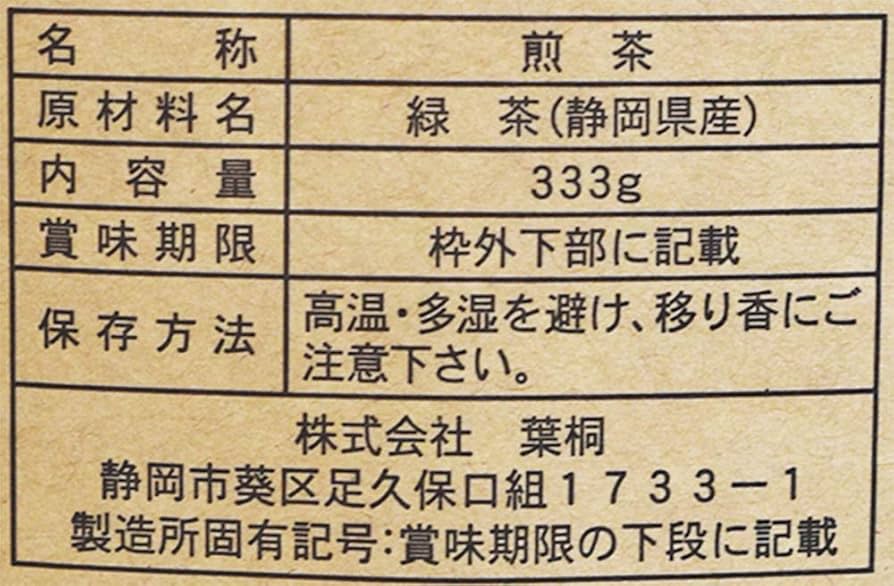 名称 煎茶
原材料名 緑 茶(静岡県産)
内容量 333g
賞味期限 枠外下部に記載
保存方法 高温・多湿を避け、移り香にご
注意下さい。
株式会社 葉桐
静岡市葵区足久保口組1733-1
製造所固有記号:賞味期限の下段に記載